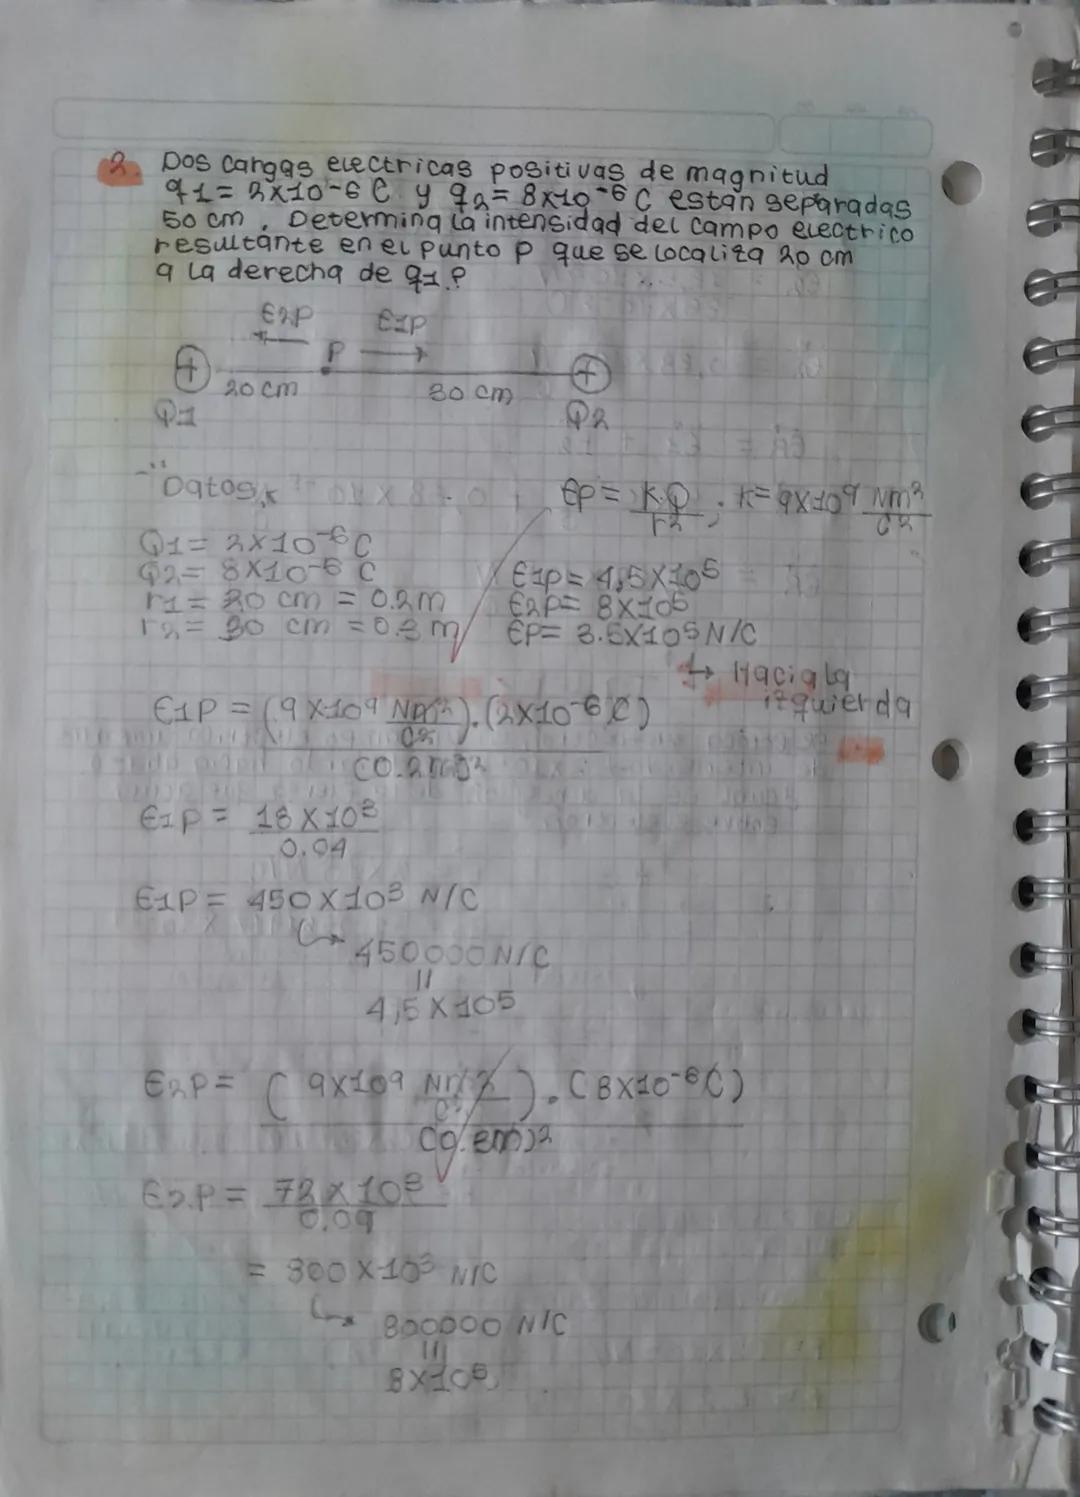 2. Dos cargas electricas positivas de magnitud
q1 = 2x10-6 C y q2 = 8x10-6 C estan separadas
50 cm, Determina la intensidad del campo electrico
resultante en el punto p que se localiza 20 cm
a la derecha de q1.?
E2P E1P
+ P +
20 cm 30 cm
Q1 Q2
Datos
EP = K.Q / r2 ; K = 9x109 Nm2 / C2
Q1 = 2x10-6 C
Q2 = 8x10-6 C
r1 = 20 cm = 0.2m
r2 = 30 cm = 0.3 m
E1P = 4,5x105
E2P = 8x105
EP = 3.5x105 N/C
↳ Hacia la
izquierda
E1P = (9x109 Nm2 / C2).(2x10-6 C)
(0.2m)2
E1P = 18x103
0.04
E1P = 450x103 N/C
↳ 450000 N/C
||
4,5x105
E2P = (9x109 Nm2 / C2).(8x10-6 C)
(0.3m)2
E2P = 72x103
0.09
= 800x103 N/C
↳ 800000 N/C
||
8x105